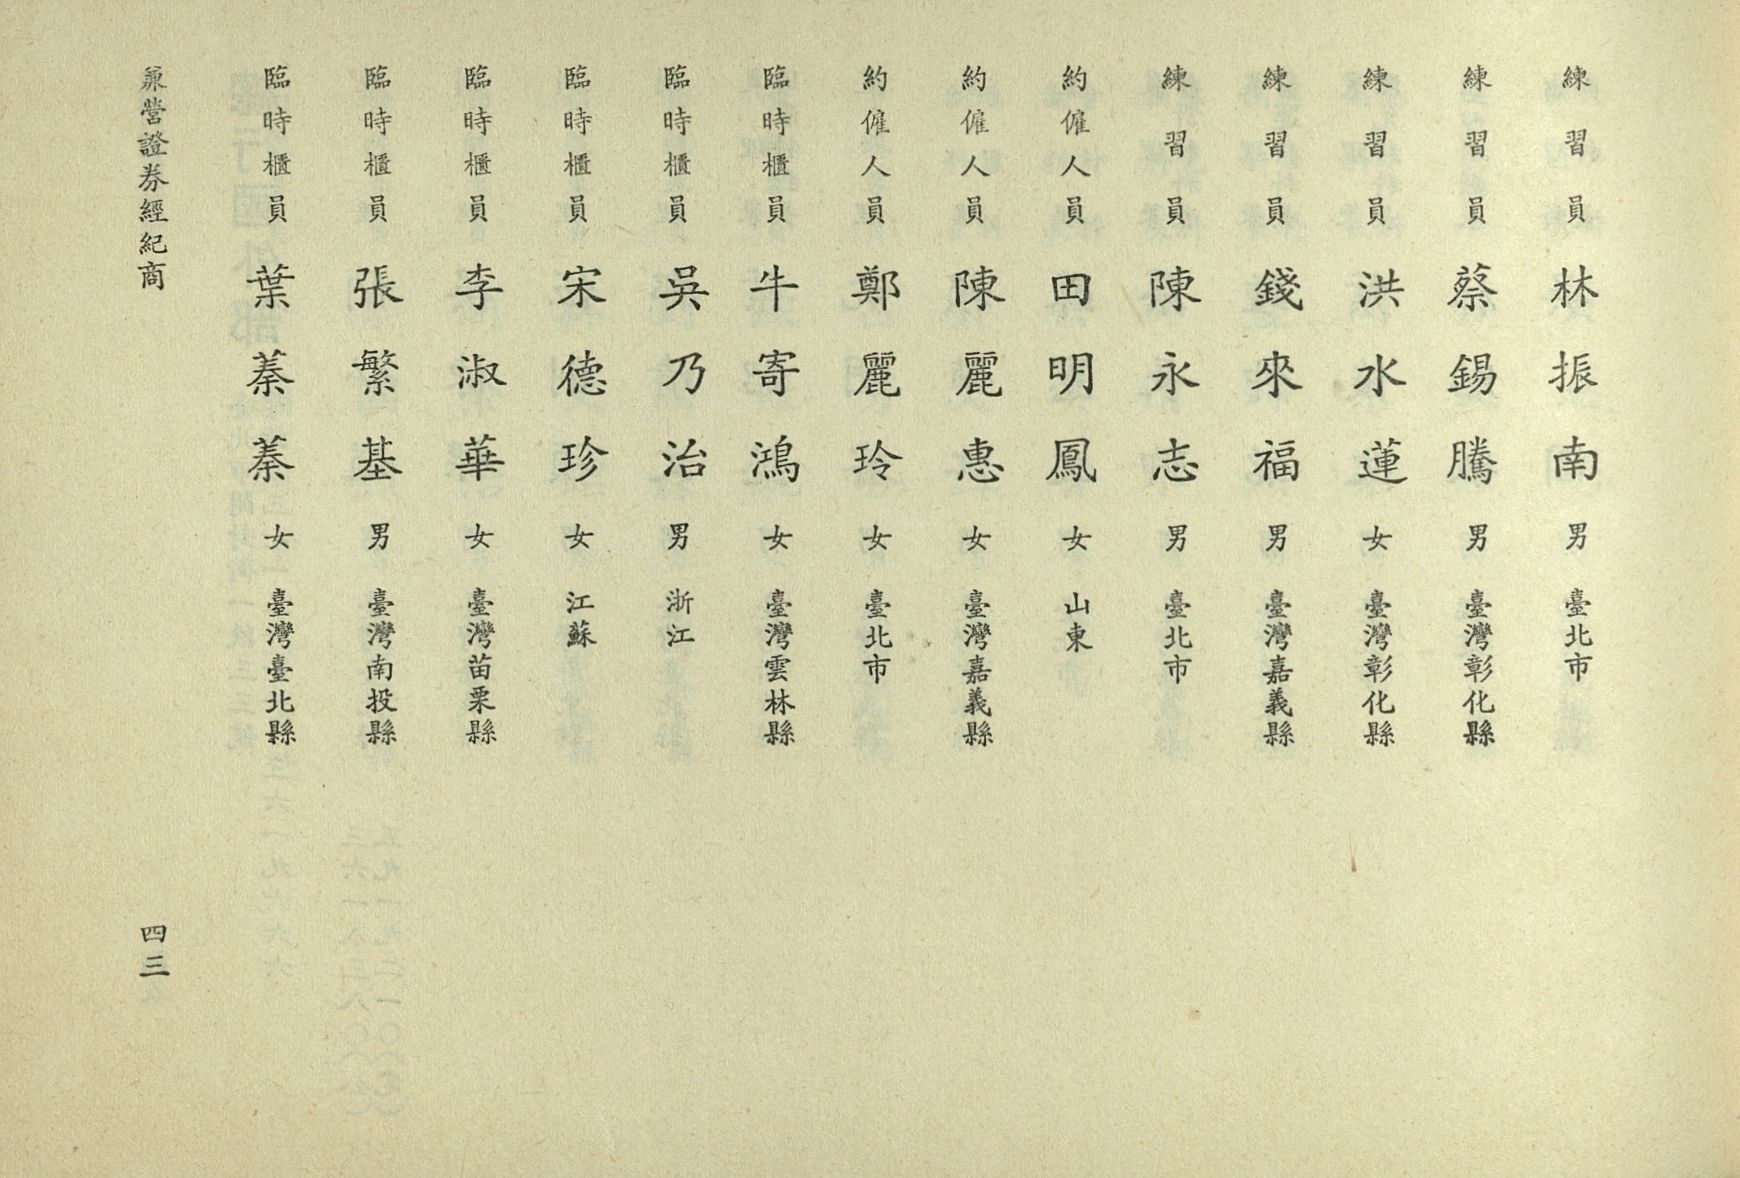 練習員 林振南 男 臺北市
練習員 蔡錫騰 男 臺灣彰化縣
練習員 洪水蓮 女 臺灣彰化縣
練習員 錢來福 男 臺灣嘉義縣
練習員 陳永志 男 臺北市
約僱人員 田明鳳 女 山東
約僱人員 陳麗惠 女 臺灣嘉義縣
約僱人員 鄭麗玲 女 臺北市
臨時櫃員 牛寄鴻 女 臺灣雲林縣
臨時櫃員 吳乃治 男 浙江
臨時櫃員 宋德珍 女 江蘇
臨時櫃員 李淑華 女 臺灣苗栗縣
臨時櫃員 張繁基 男 臺灣南投縣
臨時櫃員 葉蓁蓁 女 臺灣臺北縣
兼營證券經紀商
四三